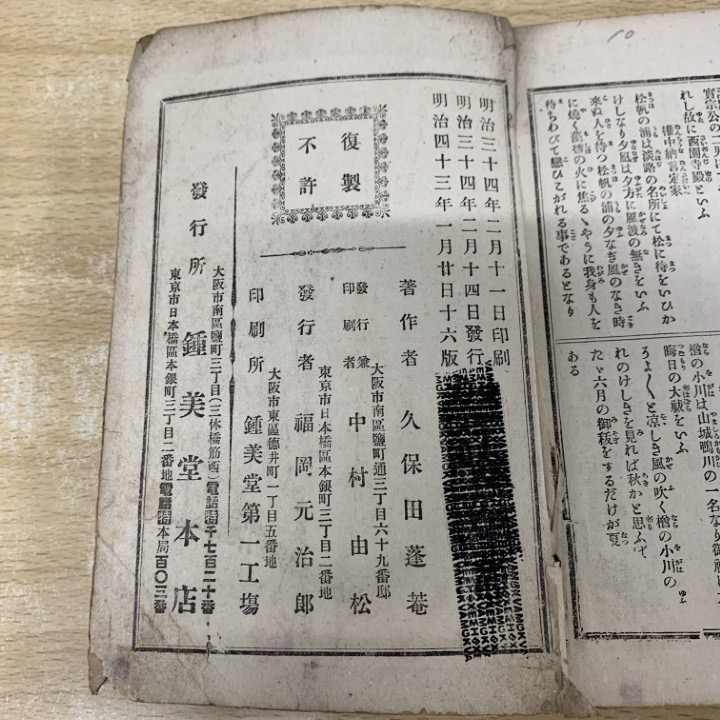 10
實宗公の二男にて
れし故に西園寺殿といふ
權中納言定家
松帆の浦は淡路の名所にて松に待をいひか
けしなり夕凪は夕方に風波の無きをいふ
來ぬ人を待つ松帆の浦の夕なぎ風のなき時
に燒く鹽の火に焦るゝやうに我身も人を
待ちわびて戀ひこがれる事であるとなり
楢の小川は山城鴨川の一名なり御祓は
晦日の大祓をいふ
そよ〳〵と凉しき風の吹く楢の小川の
れのけしきを見れば秋かと思ふて
たゞ六月の御秡をするだけが夏
ある
明治三十四年二月十一日印刷
明治三十四年二月十四日發行
明治四十三年一月廿日十六版
復製
不許
著作者 久保田蓬菴
大阪市南區鹽町通三丁目六十九番邸
發行兼印刷者 中村由松
東京市日本橋區本銀町三丁目二番地
發行者 福岡元治郎
大阪市東區德井町一丁目五番地
印刷所 鍾美堂第一工塲
大阪市南區鹽町三丁目(三休橋筋西)電話特千七百二十番
發行所 鍾美堂本店
東京市日本橋區本銀町三丁目二番地電話特本局百〇三番